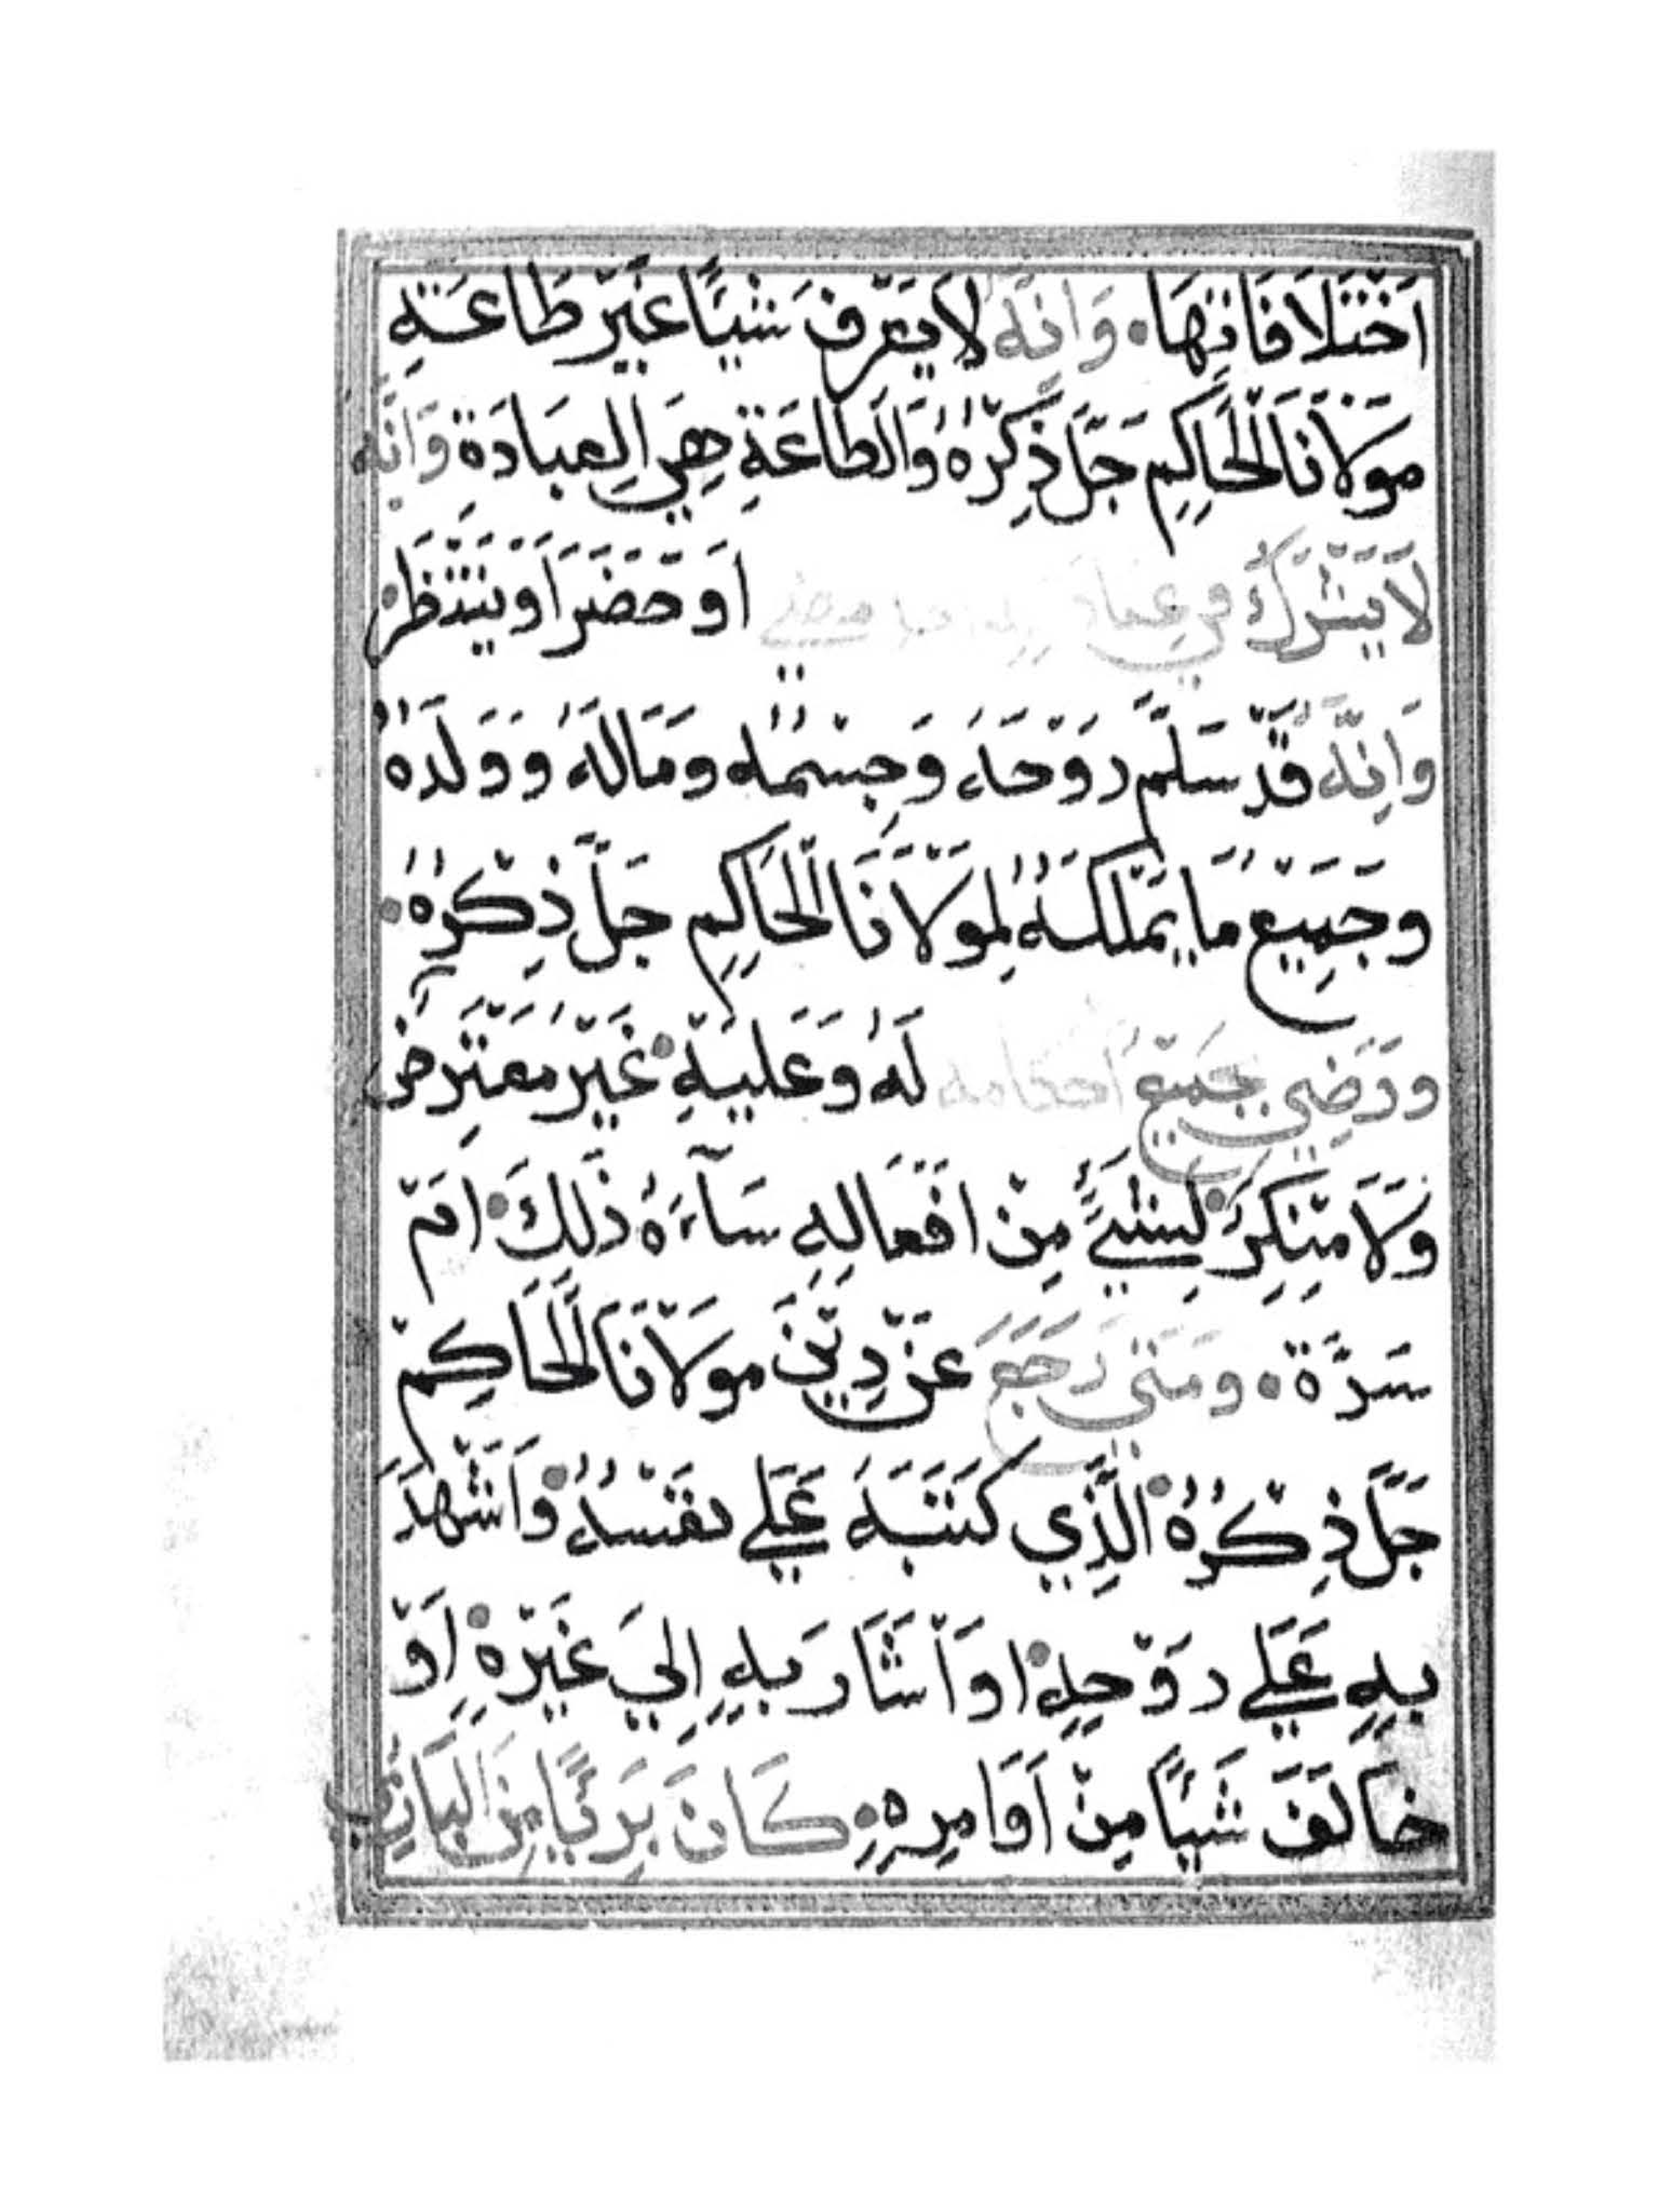 اَخْتَلَافَاتِهَا. وَانِّهُ لَا يَعْرِفَ شَيْيًا غَيْرَ طَاعَةِ
مَوَلَانَا اَلْحَاكِم جَلَّ ذِكْرُهُ وَالَطَاعَةِ هِيَ العِبَادَة وَانَّه
لَا يَشْرَكُ فِي عِبَادَ مضي اَو حَضَرَ اَوْ يَنْتَظَرْ
وَانِّهُ قَدْ سَلَّم رَوْحَهُ وَجِسْمُه وَمَالَهُ وَوَلَدَهُ
وجَمِيْعُ مَا يَمْلكَهُ لِمَوْلَانَا الْحَاكِم جَلَّ ذِكْرُهُ.
وَرَضِي بجَمِيْعِ اَحكامه لَهُ وَعَلَيْهِ غَيْرَ مُعْتَرِض
وَلَا مَنْكِرَ لِشَيءٍ مِنْ اَفْعَالِهِ سَآءَهُ ذَلِكَ اَمْ
سَرَّهْ. ومَتَى رَجَعَ عَنْ دِيْنِ مَوْلَانَا اَلْحَاكِمْ
جَلَّ ذِكْرُهُ الَّذِي كَتَبَهُ عَلَي نفَسْهُ وَاَشْهَدَ
بهِ عَلَي رَوْحِهِ اوْ اَشَارَ بهِ اِليَ غَيْرَهِ اَوْ
خَالَفَ شَيًا مِنْ اَوَامِرِهِ. كَانَ بَرَيًّا مِنَ البَارِي